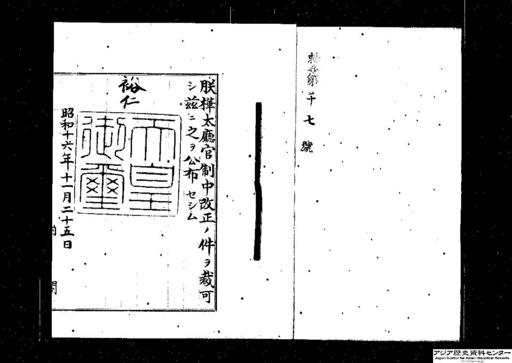 勅令第千七號
朕樺太廳官制中改正ノ件ヲ裁可
シ茲ニ之ヲ公布セシム
裕仁
天皇御璽
昭和十六年十一月二十五日
アジア歴史資料センター
Japan Center for Asian Historical Records